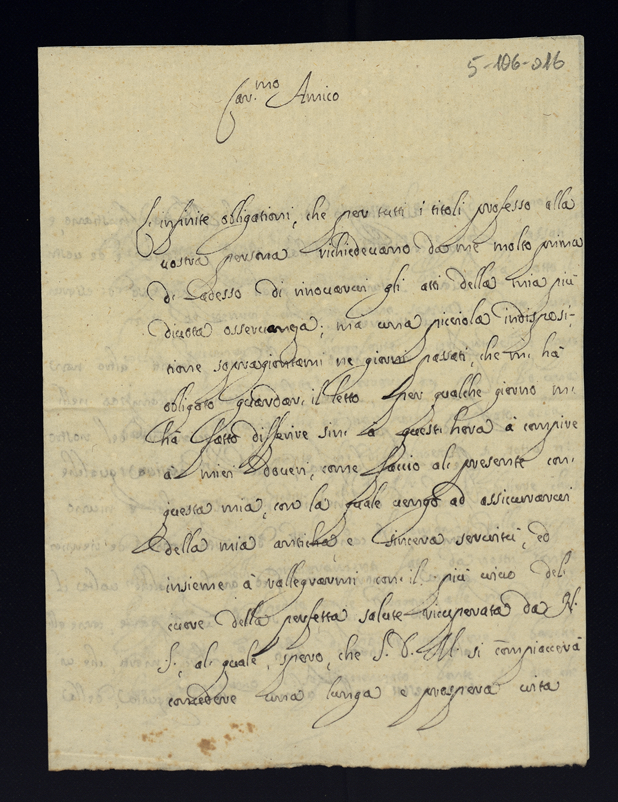 5-106-216
Car.mo Amico
L'infinite obligationi, che per tutti i titoli professo alla
vostra persona richiedevano da me molto prima
di adesso di rinovarvi gli atti della mia più
divota osservanza; ma una picciola indisposi-
tione sopragiontami ne giorni passati, che mi hà
obligato guardar il letto per qualche giorno mi
hà fatto differire sin a quest'hora à compire
à miei doveri, come faccio al presente con
questa mia, con la quale vengo ad assicurarvi
della mia anticha e sincera servitù, ed
insieme à rallegrarmi con il più vivo del
cuore della perfetta salute ricuperata da N.
S., al quale, spero, che S. D. M. si compiacerà
concedere una lunga e prospera vita